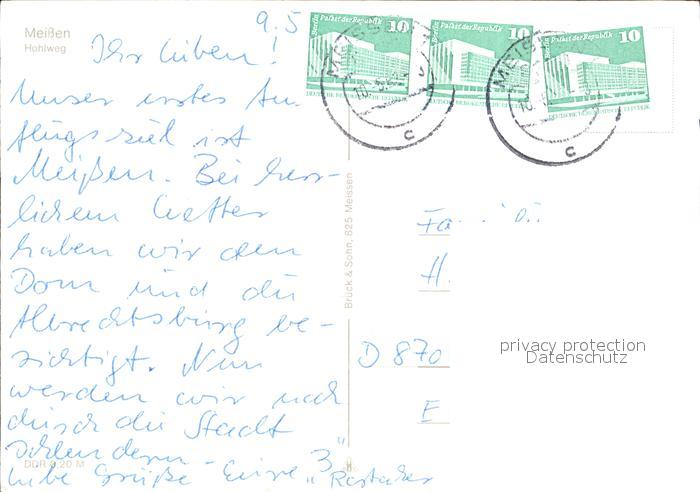 Meißen
Hohlweg
9.5
Ihr Lieben!
Unser erstes Au-
flugsziel ist
Meißen. Bei herr-
lichem Wetter
haben wir den
Dom und die
Albrechtsburg be-
sichtigt. Nun
werden wir noch
durch die Stadt
schlendern.
Liebe Grüße Eure 3
DDR 0,20 M
Brück & Sohn, 825 Meissen
Berlin Palast der Republik 10
Berlin Palast der Republik 10
Berlin Palast der Republik 10
DEUTSCHE DEMOKRATISCHE REPUBLIK
MEISSEN
c
MEISSEN
c
Fa
H.
D 870
E
privacy protection
Datenschutz